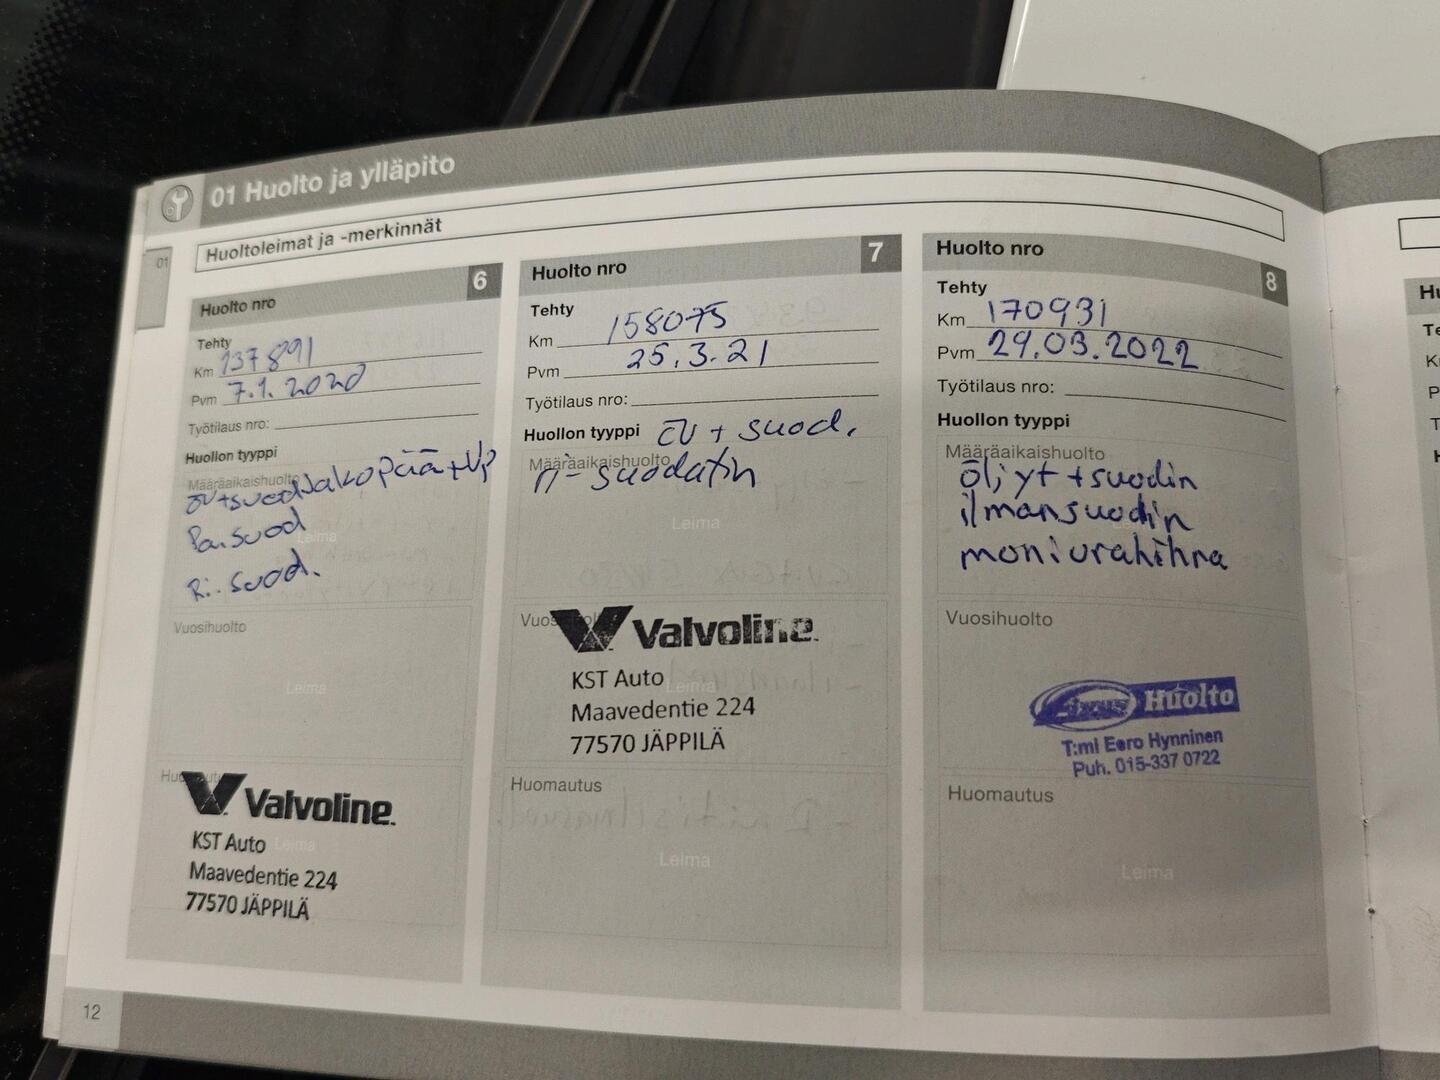 01 Huolto ja ylläpito
Huoltoleimat ja -merkinnät
01
Huolto nro 6
Tehty
Km 137891
Pvm 7.1.2020
Työtilaus nro:
Huollon tyyppi
Määräaikaishuolto
öv+suod Jakopää+Vp
Pa.suod
Ri.suod.
Leima
Vuosihuolto
Leima
Huomautus
Valvoline
KST Auto
Leima
Maavedentie 224
77570 JÄPPILÄ
Huolto nro 7
Tehty
Km 158075
Pvm 25.3.21
Työtilaus nro:
Huollon tyyppi öv + suod.
Määräaikaishuolto
ri-suodatin
Leima
Valvoline
KST Auto
Leima
Maavedentie 224
77570 JÄPPILÄ
Huomautus
Leima
Huolto nro 8
Tehty
Km 170931
Pvm 29.03.2022
Työtilaus nro:
Huollon tyyppi
Määräaikaishuolto
öljyt + suodin
ilmansuodin
moniurahihna
Vuosihuolto
Huolto
T:mi Eero Hynninen
Puh. 015-337 0722
Huomautus
Leima
12